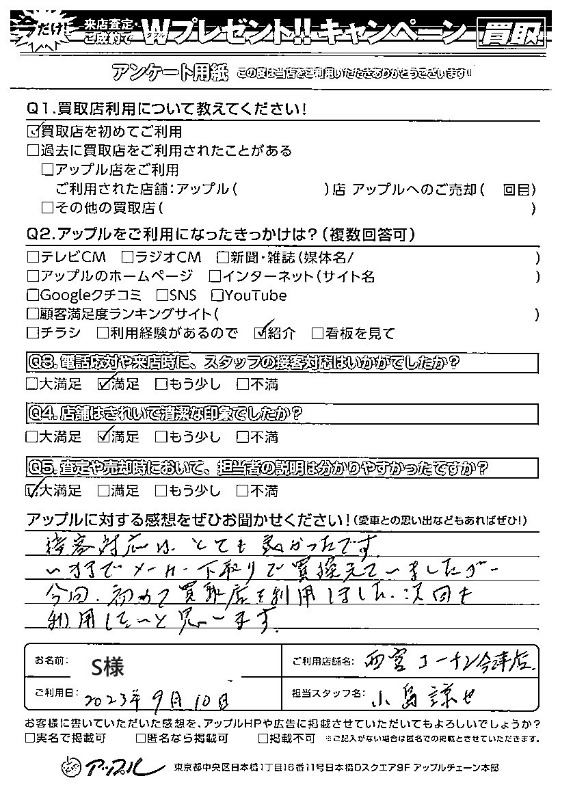 今だけ! 来店査定・ご成約で Wプレゼント!! キャンペーン 買取
アンケート用紙 この度は当店をご利用いただきありがとうございます!
Q1.買取店利用について教えてください!
☑買取店を初めてご利用
□過去に買取店をご利用されたことがある
□アップル店をご利用
ご利用された店舗:アップル( )店 アップルへのご売却( 回目)
□その他の買取店( )
Q2.アップルをご利用になったきっかけは?(複数回答可)
□テレビCM □ラジオCM □新聞・雑誌(媒体名/ )
□アップルのホームページ □インターネット(サイト名 )
□Googleクチコミ □SNS □YouTube
□顧客満足度ランキングサイト( )
□チラシ □利用経験があるので ☑紹介 □看板を見て
Q3.電話応対や来店時に、スタッフの接客対応はいかがでしたか?
□大満足 ☑満足 □もう少し □不満
Q4.店舗はきれいで清潔な印象でしたか?
□大満足 ☑満足 □もう少し □不満
Q5.査定や売却時において、担当者の説明は分かりやすかったですか?
☑大満足 □満足 □もう少し □不満
アップルに対する感想をぜひお聞かせください!(愛車との思い出などもあればぜひ!)
接客対応は、とても良かったです。
いままでメーカー下取りで買換えていましたが
今回、初めて買取店を利用しました。次回も
利用したいと思います。
お名前: S様 ご利用店舗名: 西宮コーナン今津店
ご利用日: 2023年9月10日 担当スタッフ名: 小島諒也
お客様に書いていただいた感想を、アップルHPや広告に掲載させていただいてもよろしいでしょうか?
□実名で掲載可 □匿名なら掲載可 □掲載不可 ※ご記入がない場合は匿名での掲載とさせていただきます。
アップル 東京都中央区日本橋1丁目16番11号日本橋Dスクエア9F アップルチェーン本部